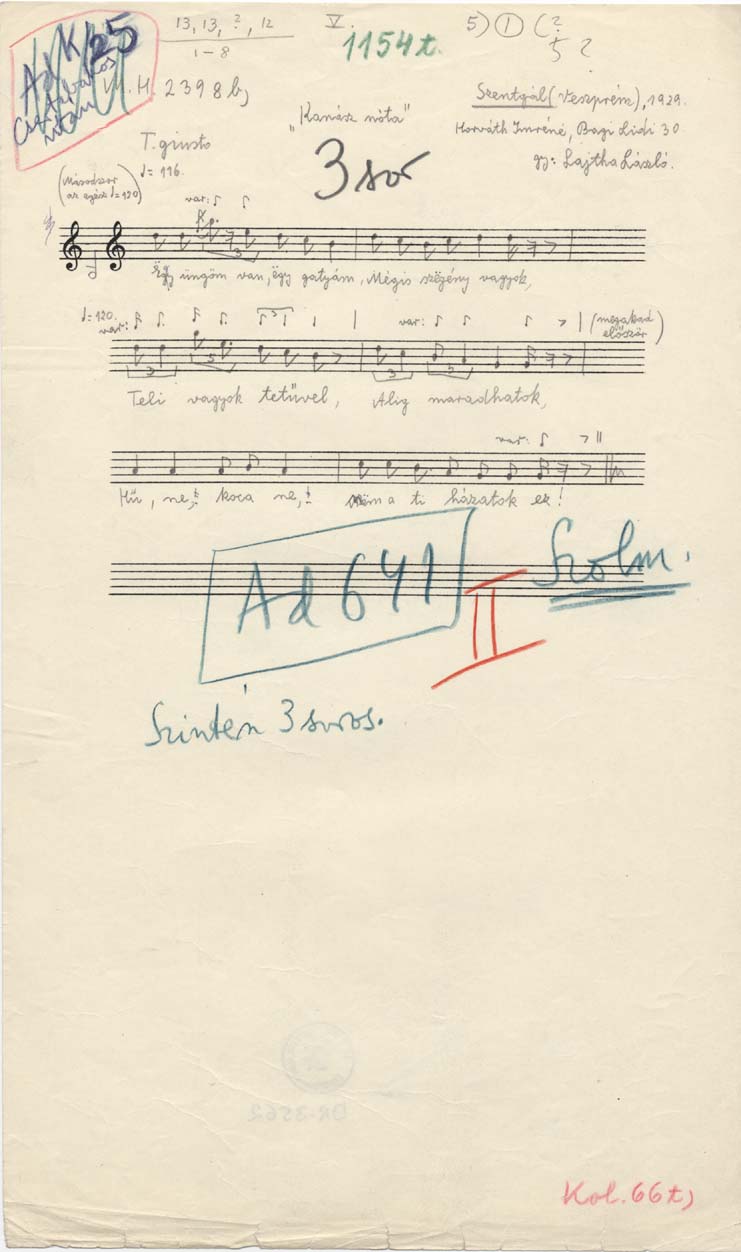 13, 13, ?, 12
1-8
V.
5) ① (?
5 ?
1154t.
Ad K 25
utan
M. H. 2398 b)
Szentgál (Veszprém), 1929.
"Kanász nóta"
Horváth Imréné, Bagi Lidi 30
gy: Lajtha László.
T. giusto
♩= 116.
3 sor
(Másodszor
az egész ♩=120)
var:
Ëgy üngöm van, ëgy gatyám, Mégis szëgény vagyok,
3
♩= 120.
var:
3
var:
(megakad
először)
3
5
3
3
Teli vagyok tetűvel, Alig maradhatok,
var:
Hű, ne, koca ne, nëm a ti házatok ez!
Ad 641
II
Szolm.
Szintén 3 soros.
DR-3562
Kol. 66t)